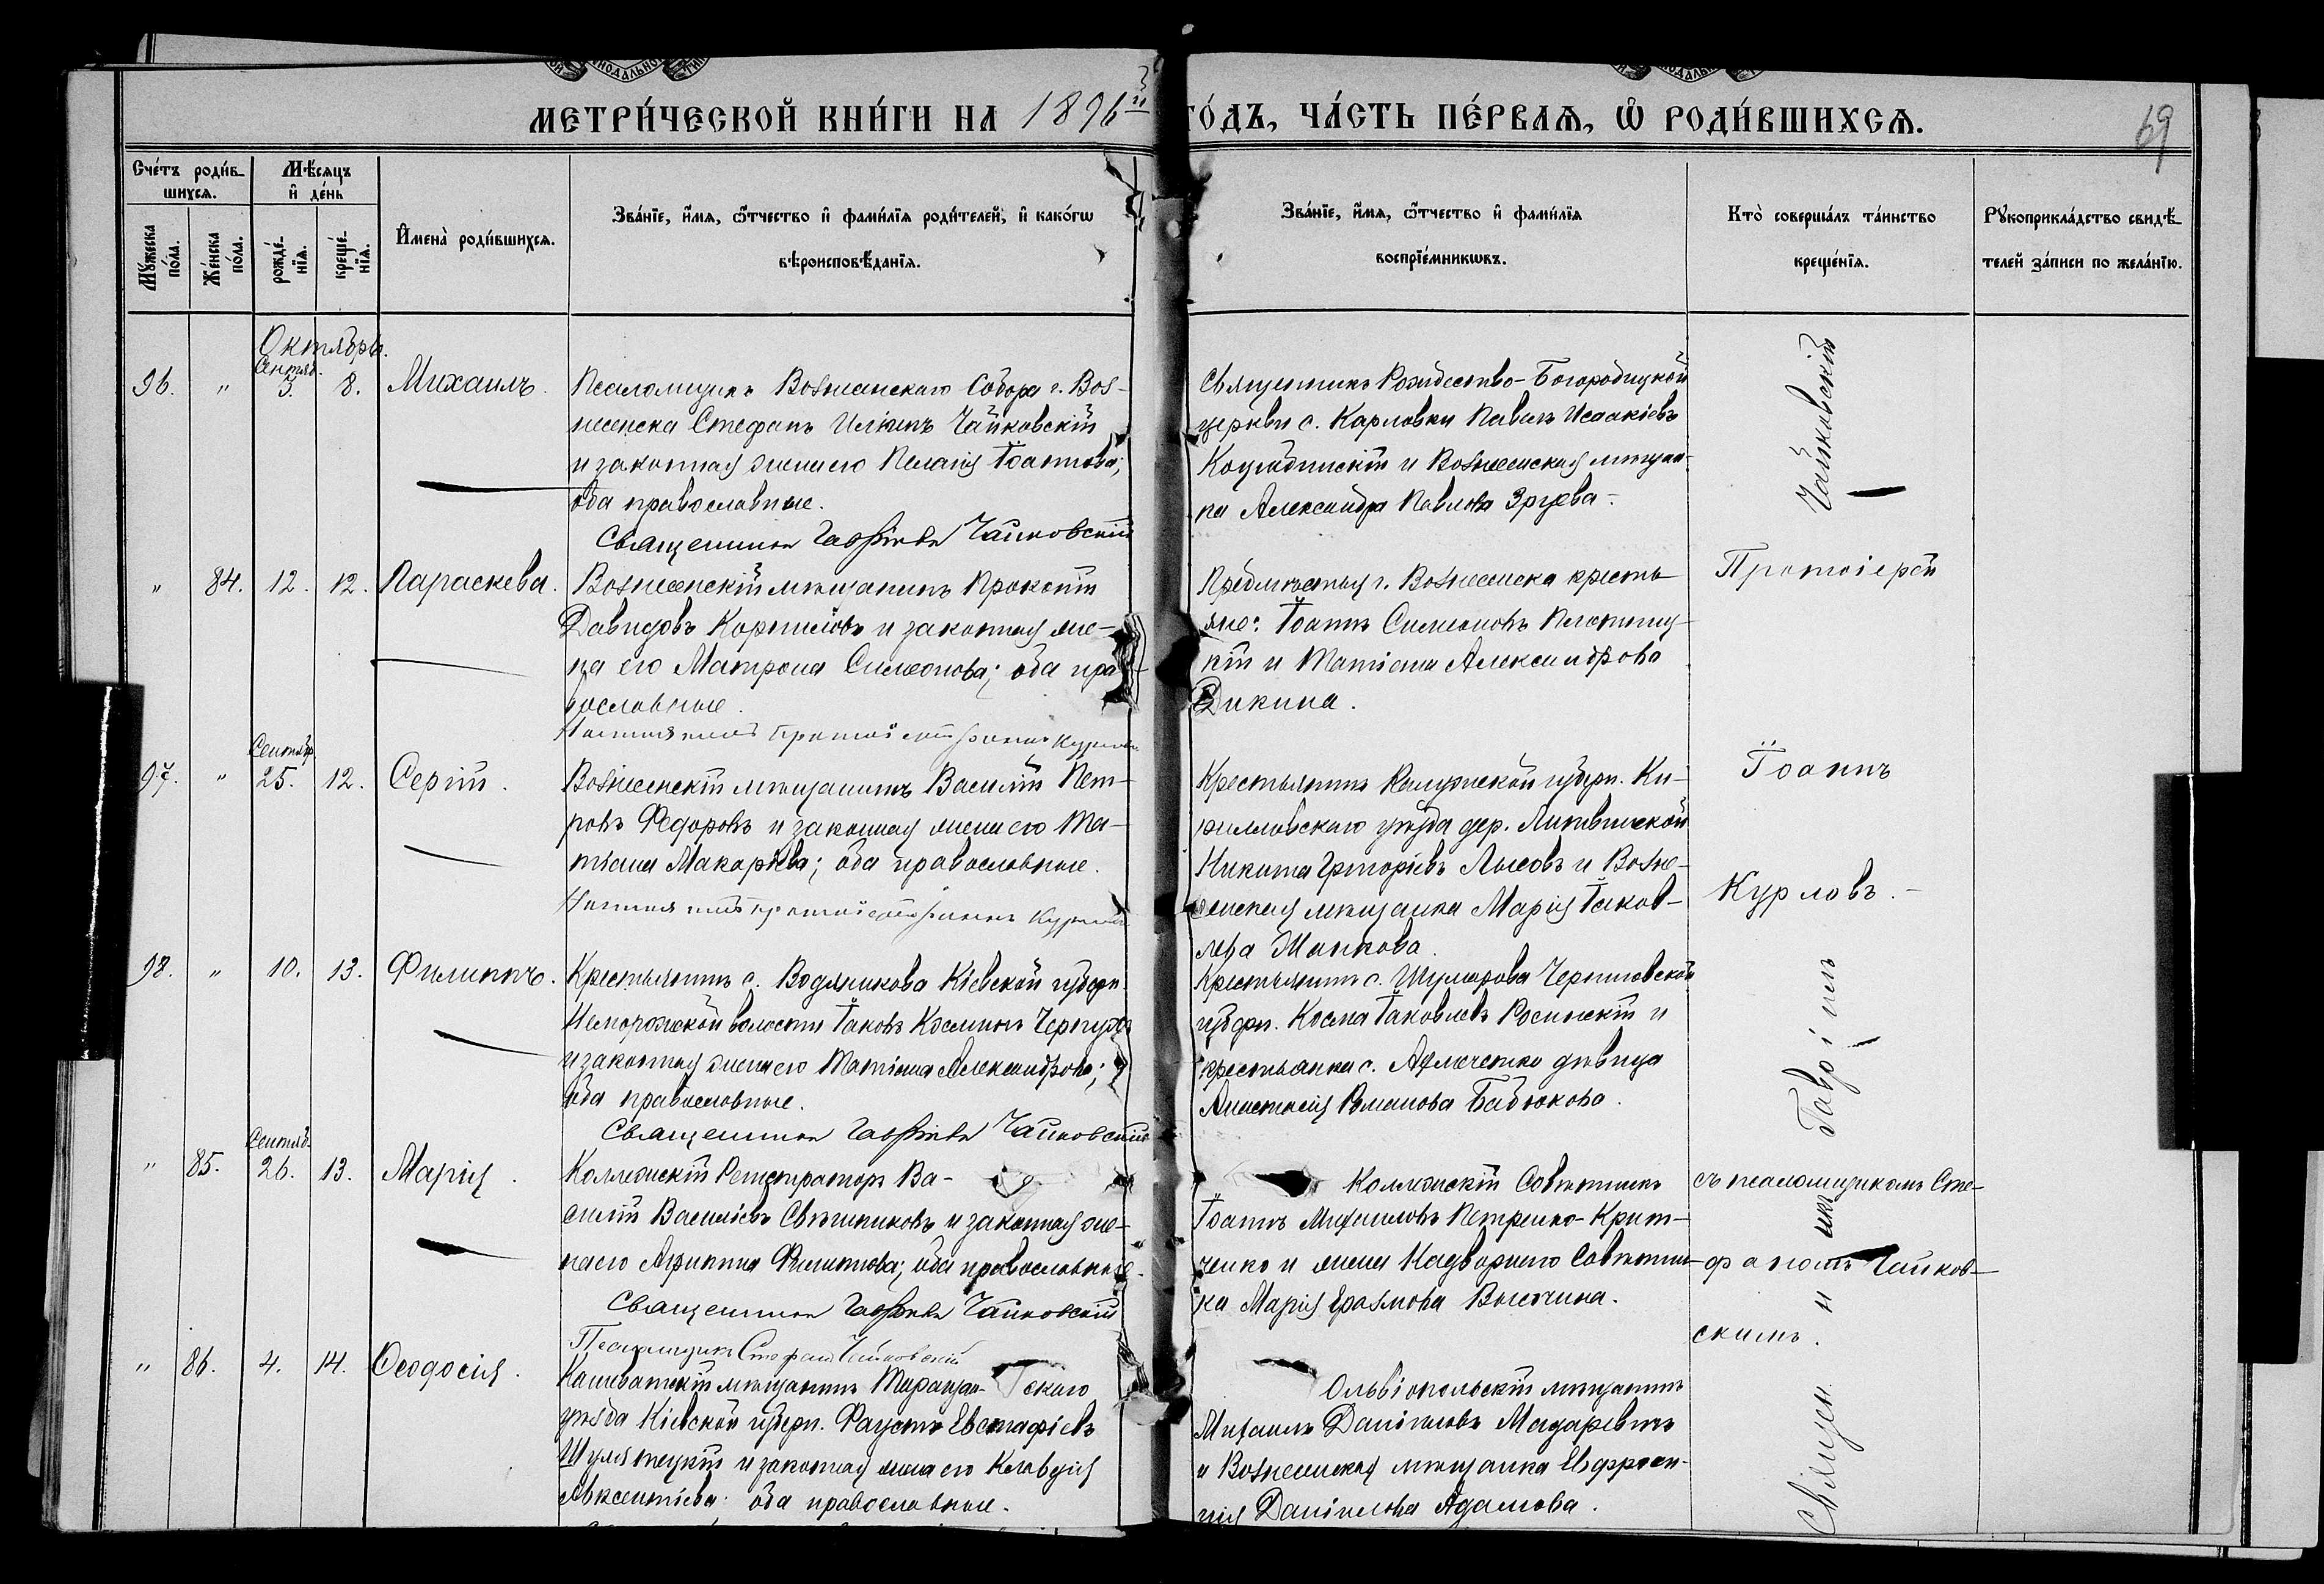 МЕТРИ́ЧЕСКОЙ КНИ́ГИ НА 1896й ГО́ДЪ, ЧА́СТЬ ПЕ́РВАѦ, Ѡ҆ РОДИ́ВШИХСѦ.
69
Сче́тъ роди́в-
шихсѧ.
Мꙋ́жеска по́ла.
Же́нска по́ла.
Мѣ́сѧцъ
и҆ де́нь
рожде́-нїѧ.
креще́-нїѧ.
И҆мена̀ роди́вшихсѧ.
Зва́нїе, и҆́мѧ, ѻ҆́тчество и҆ фами́лїѧ роди́телей, и҆ како́гѡ
вѣроисповѣ́данїѧ.
Зва́нїе, и҆́мѧ, ѻ҆́тчество и҆ фами́лїѧ
воспрїе́мникѡвъ.
Кто̀ соверша́лъ та́инство
креще́нїѧ.
Рꙋкоприкла́дство свидѣ́-
телей за́писи по жела́нїю.
Октябрь.
Сентяб.
96. " 3. 8. Михаилъ.
Псаломщикъ Вознесенскаго Собора г. Воз-
несенска Стефанъ Иліинъ Чайковскій
и законная жена его Пелагія Іоаннова;
оба православные.
Священникъ Гавріилъ Чайковскій
Священникъ Рождество-Богородицкой
церкви с. Карловки Павелъ Исаакіевъ
и Вознесенская мѣщан-
ка Александра Павлова
" 84. 12. 12. Параскева.
Вознесенскій мѣщанинъ Прокопій
Давидовъ Корниловъ и законная же-
на его Матрона Симеонова; оба пра-
вославные.
Предмѣстья г. Вознесенска кресть-
яне: Іоаннъ Симеоновъ
и Татіана Александрова
Дикина.
Протоіерей
Іоаннъ
Курловъ.
Сентябр
97. " 25. 12. Сергій.
Вознесенскій мѣщанинъ Василій Пет-
ровъ Федоровъ и законная жена его Та-
тіана Макаріева; оба православные.
Крестьянинъ Калужской губерн. Ки-
рилловскаго уѣзда дер.
Никита Григоріевъ Лысовъ и Возне-
сенская мѣщанка Марія Іаков-
лева Жапкова.
98. " 10. 13. Филиппъ.
Крестьянинъ с. Водяникова Кіевской губерн.
волости Іаковъ Косминъ
и законная жена его Татіана Александрова;
оба православные.
Священникъ Гавріилъ Чайковскій
Крестьянинъ с. Черниговской
губерн. Косма Іаковлевъ Росинскій и
крестьянка с. дѣвица
Анастасія Романова Бабюкова.
Сентяб.
" 85. 26. 13. Марія.
Коллежскій Регистраторъ Ва-
силій Василіевъ Свѣшниковъ и законная же-
на его Агриппина Филиппова; оба православные.
Священникъ Гавріилъ Чайковскій
Псаломщикъ Стефанъ Чайковскій
Коллежскій Совѣтникъ
Іоаннъ Михаиловъ Петренко-Крит-
ченко и жена Надворнаго Совѣтни-
ка Марія Еразмова Высочина.
съ псаломщикомъ Сте-
фаномъ Чайков-
скимъ.
" 86. 4. 14. Ѳеодосія.
мѣщанинъ Таращан-скаго
уѣзда Кіевской губерн. Фаустъ Евстафіевъ
и законная жена его Клавдія
Авксентіева; оба православные.
Ольвіопольскій мѣщанинъ
Михаилъ Даніиловъ Мазаревичъ
и Вознесенская мѣщанка Евфроси-
нія Даніилова Адамова.
Священникъ Гавріилъ Чайковскій